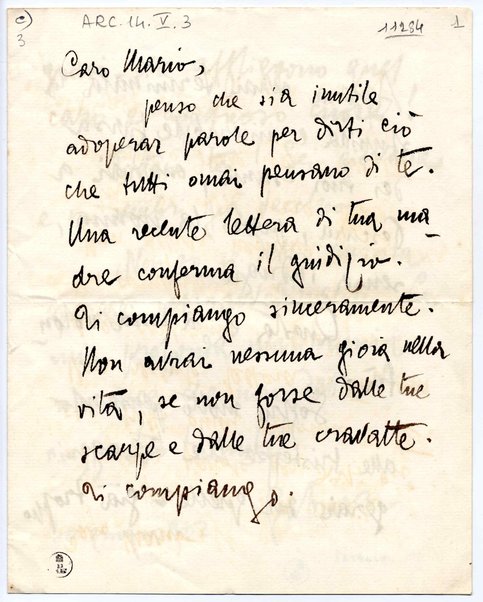 c)
3
ARC. 14. V. 3
11284
1
Caro Mario,
penso che sia inutile
adoperar parole per dirti ciò
che tutti omai pensano di te.
Una recente lettera di tua ma-
dre conferma il giudizio.
Ti compiango sinceramente.
Non avrai nessuna gioia nella
vita, se non forse dalle tue
scarpe e dalle tue cravatte.
Ti compiango.